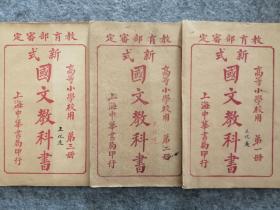 教育部審定
新式
國文教科書
高等小學校用
第三册
上海中華書局印行
教育部審定
新式
國文教科書
高等小學校用
第二册
上海中華書局印行
教育部審定
新式
國文教科書
高等小學校用
第一册
上海中華書局印行